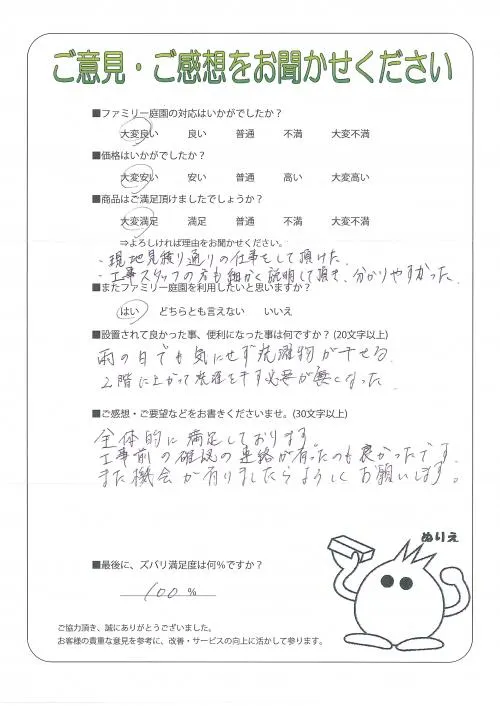 ご意見・ご感想をお聞かせください
■ファミリー庭園の対応はいかがでしたか？
大変良い 良い 普通 不満 大変不満
■価格はいかがでしたか？
大変安い 安い 普通 高い 大変高い
■商品はご満足頂けましたでしょうか？
大変満足 満足 普通 不満 大変不満
⇒よろしければ理由をお聞かせください。
・現地見積り通りの仕事をして頂けた。
・工事スタッフの方も細かく説明して頂き、分かりやすかった。
■またファミリー庭園を利用したいと思いますか？
はい どちらとも言えない いいえ
■設置されて良かった事、便利になった事は何ですか？(20文字以上)
雨の日でも気にせず洗濯物が干せる。
2階に上がって洗濯を干す必要が無くなった。
■ご感想・ご要望などをお書きくださいませ。(30文字以上)
全体的に満足しております。
工事前の確認の連絡が有ったのも良かったです。
また機会が有りましたらよろしくお願いします。
ぬりえ
■最後に、ズバリ満足度は何％ですか？
100 %
ご協力頂き、誠にありがとうございました。
お客様の貴重な意見を参考に、改善・サービスの向上に活かして参ります。